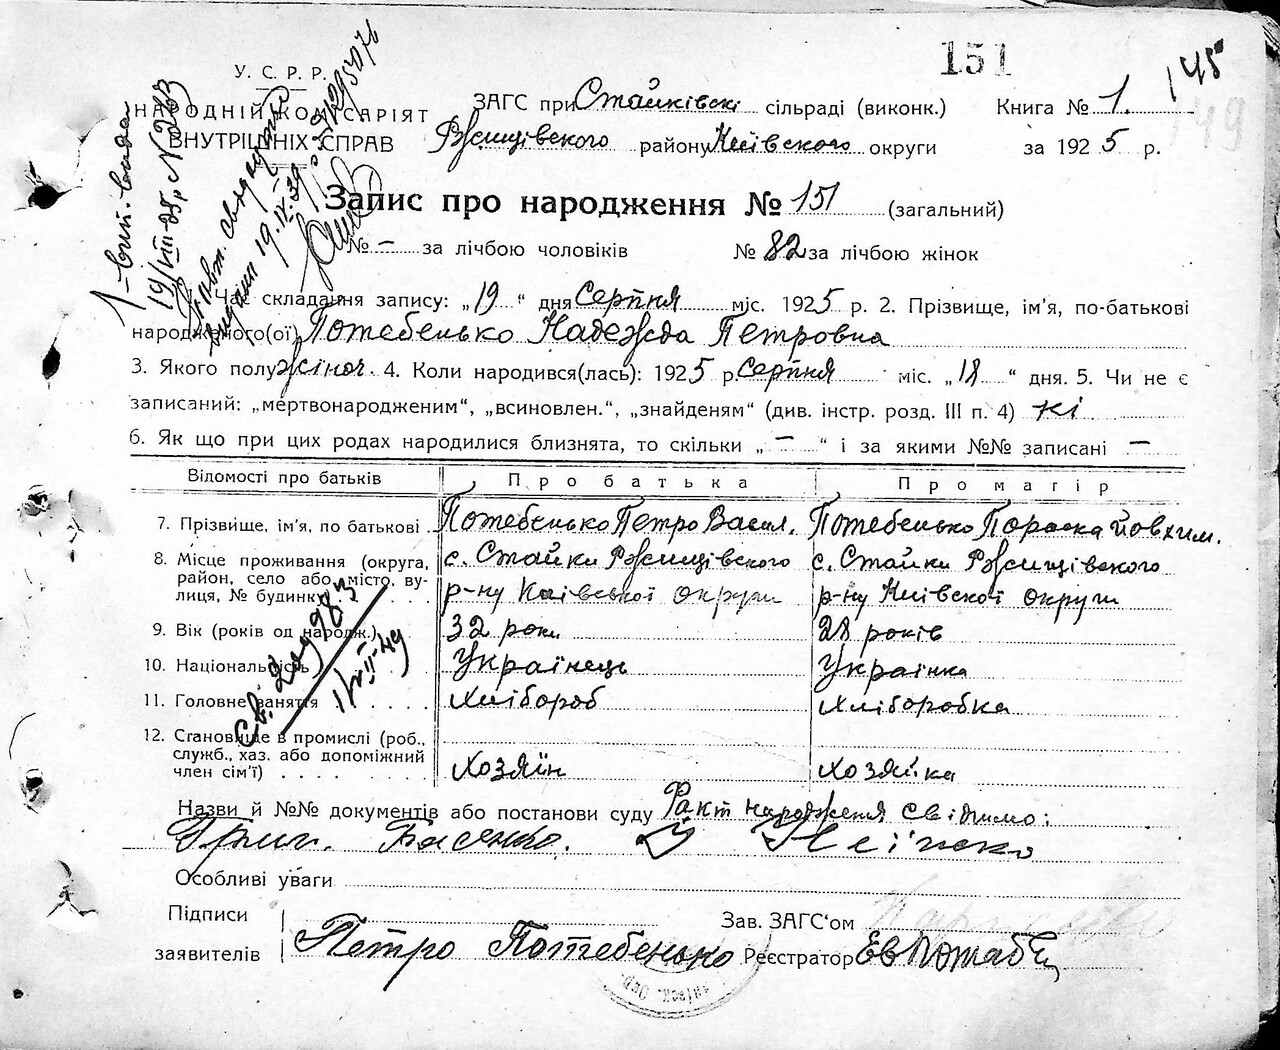 151
145
149
У. С. Р. Р.
НАРОДНІЙ КОМІСАРІЯТ
ВНУТРІШНІХ СПРАВ
ЗАГС при Стайківскі сільраді (виконк.) Книга № 1.
Ржищівского району Київского округи за 1925 р.
Запис про народження № 151 (загальний)
№ — за лічбою чоловіків № 82 за лічбою жінок
Час складання запису: „19" дня Серпня міс. 1925 р. 2. Прізвище, ім'я, по-батькові
народженого(ої) Потебенько Надежда Петровна
3. Якого полу жіноч. 4. Коли народився(лась): 1925 р. серпня міс. „18" дня. 5. Чи не є
записаний: „мертвонародженим", „всиновлен.", „знайденям" (див. інстр. розд. III п. 4) ні
6. Як що при цих родах народилися близнята, то скільки „—" і за якими №№ записані —
Відомості про батьків Про батька Про матір
7. Прізвище, ім'я, по батькові Потебенько Петро Васил. Потебенько Параска Йовхим.
8. Місце проживання (округа, с. Стайки Ржищівского с. Стайки Ржищівского
район, село або місто, ву-
лиця, № будинку р-ну Київської округи р-ну Київскої округи
9. Вік (років од народж.) 32 роки 28 років
10. Національність Українець Украінка
11. Головне заняття Хлібороб Хліборобка
12. Становище в промислі (роб.,
служб., хаз. або допоміжний
член сім'ї) Хозяїн Хозяйка
Назви й №№ документів або постанови суду Факт народження свідчимо:
Особливі уваги
Підписи
заявителів Петро Потебенько
Зав. ЗАГС'ом
Реєстратор